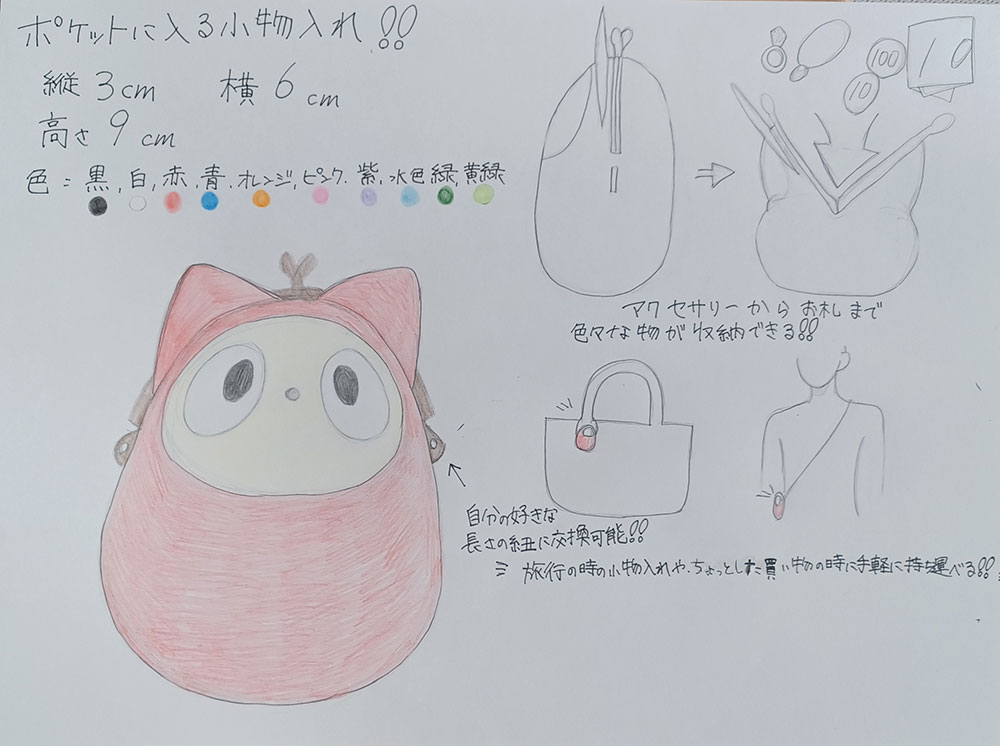 ポケットに入る小物入れ!!
縦 3cm 横 6cm
高さ 9cm
色:黒,白,赤,青,オレンジ,ピンク,紫,水色,緑,黄緑
100
10
10
アクセサリーからお札まで
色々な物が収納できる!!
自分の好きな
長さの紐に交換可能!!
旅行の時の小物入れや、ちょっとした買い物の時に手軽に持ち運べる!!